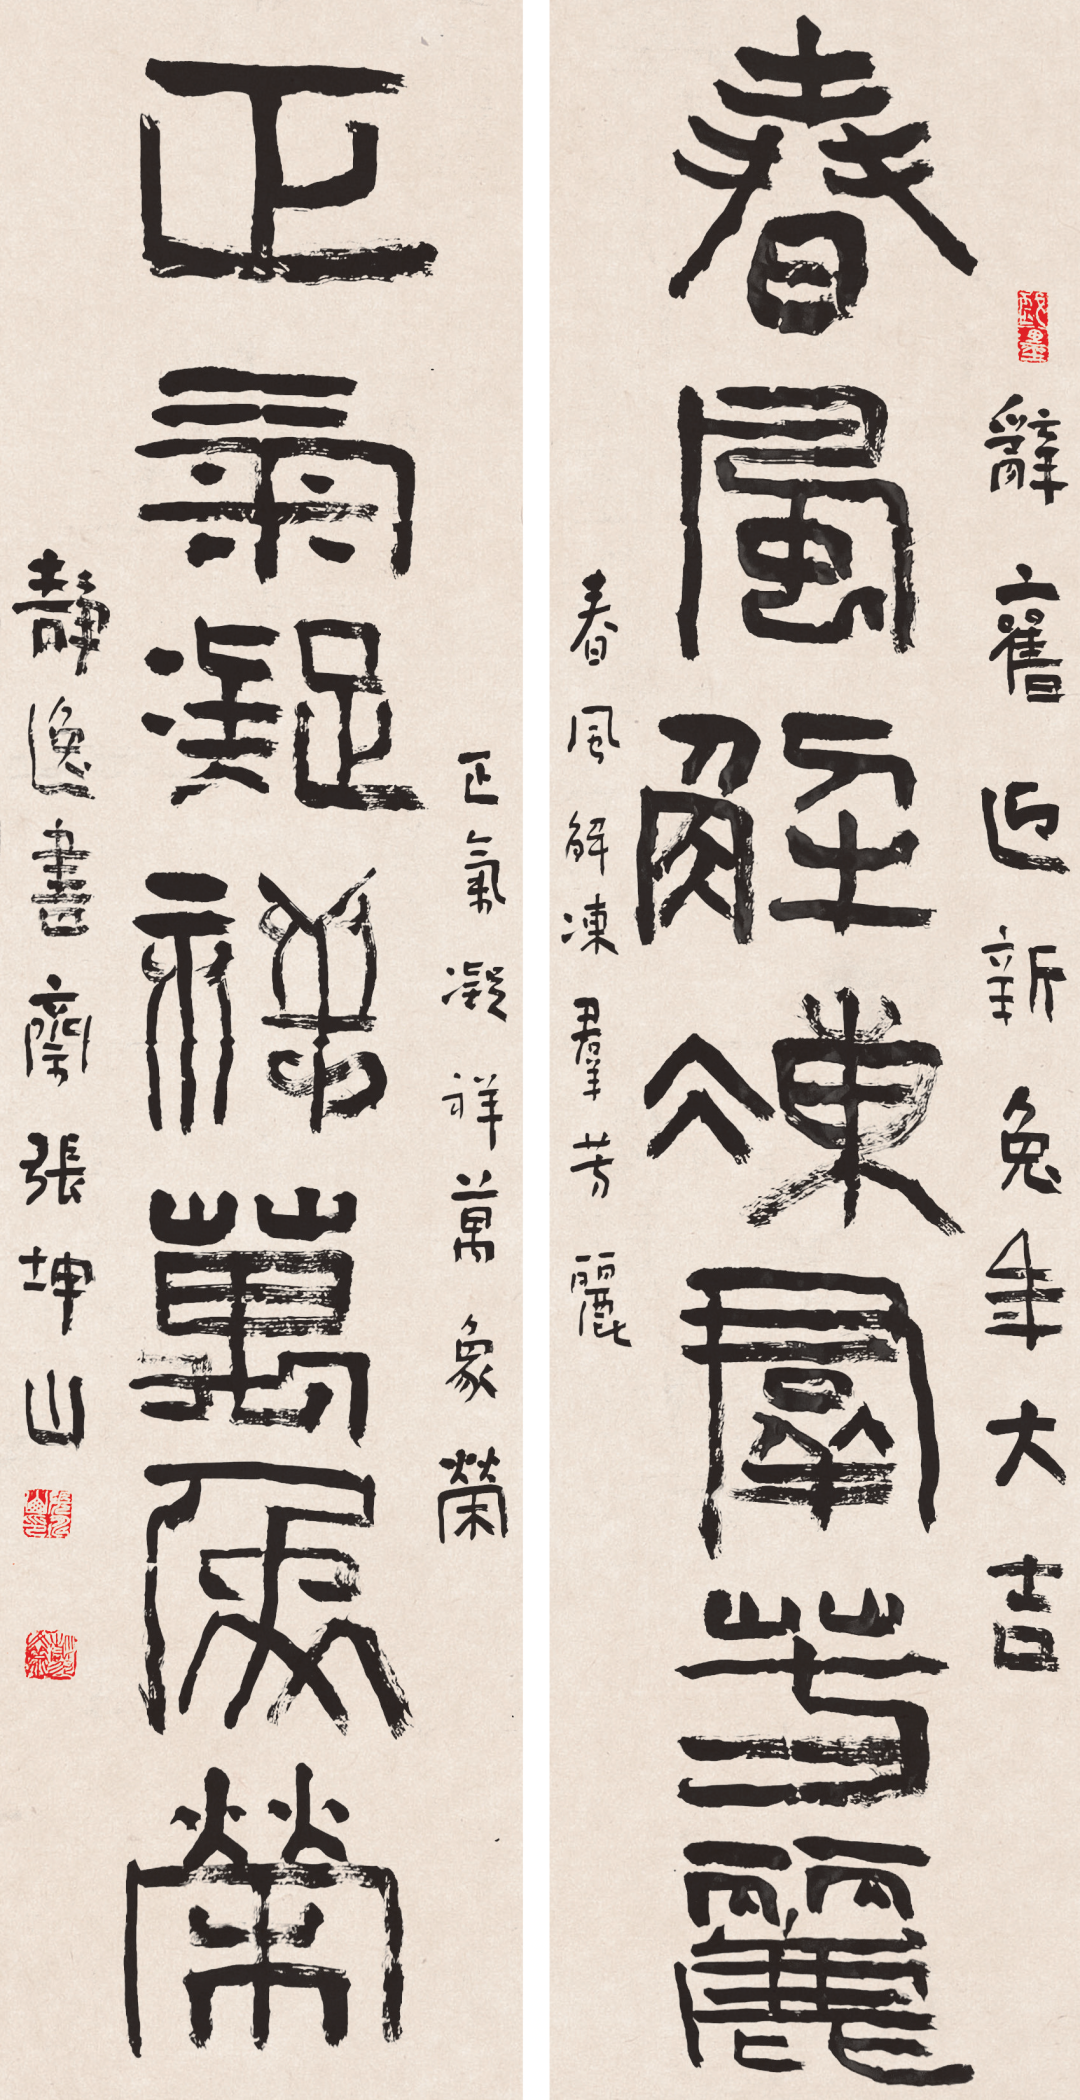 辭舊迎新兔年大吉
春風解凍羣芳麗
春風解凍羣芳麗
正氣凝祥萬象榮
正氣凝祥萬象榮
靜逸書齋張坤山